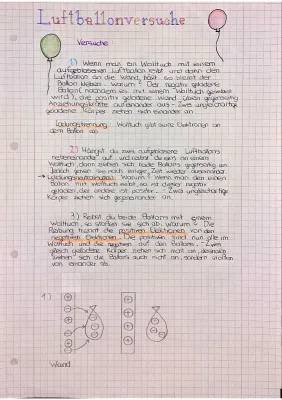 Luftballonversuche
Versuche
1) Wenn man ein Wolltuch mit einem
aufgeblasenen Luftballon reibt und dann den
Luftballon an die Wand hält, so bleibt der
Ballon kleben. Warum? Der negativ geladene
Ballon (nachdem es mit einem Wolltuch gerieben
wird), die positiv geladene Wand ziehen gegenseitig
Anziehungskräfte aufeinander aus - Zwei ungleichartig
geladene Körper ziehen sich einander an.
Ladungstrennung: Wolltuch gibt seine Elektronen an
dem Ballon ab.
2) Hängst du zwei aufgeblasene Luftballons
nebeneinander auf und reibst du den an einem
Wolltuch, dann ziehen sich beide Ballons gegenseitig an.
Jedoch gehen sie nach einiger Zeit wieder auseinander
Warum? Wenn man den einen
Ballon mit Wolltuch reibt, so ist dieser negativ
geladen, der andere ist positiv. Zwei ungleichartige
Körper ziehen sich gegeneinander an.
3) Reibst du beide Ballons mit einem
Wolltuch, so stoßen sie sich ab. Warum? Die
Reibung trennt die positiven Elektronen von den
negativen Elektronen. Die positiven sind nun alle im
Wolltuch und die negativen auf den Ballons. Zwei
gleich geladene Körper ziehen sich nicht an, deshalb
ziehen sich die Ballons auch nicht an, sondern stoßen
von einander ab.
1)
Wand